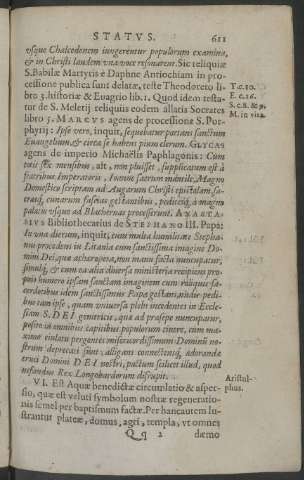 STATVS. 611
vsque Chalcedonem iungerentur populorum examina,
& in Christi laudem vna voce resonarent. Sic reliquiæ
S. Babilæ Martyris è Daphne Antiochiam in pro-
cessione publica sunt delatæ, teste Theodoreto li-
T. c. 10.
bro 3. historiæ & Euagrio lib. 1. Quod idem testa-
E. c. 16.
tur de S. Meletij reliquiis eodem allatis Socrates
S. c. 8. & 9.
libro 5. MARCVS agens de processione S. Por-
M. in vita.
phyrij: Ipse verò, inquit, sequebatur portans sanctum
Euangelium, & circa se habens pium clerum. GLYCAS
agens de imperio Michaëlis Paphlagonis: Cum
totis sex mensibus, ait, non pluisset, supplicatum est à
fratribus Imperatoris, Ioanne sacrum mantile, Magno
Domestico scriptam ad Augarum Christi epistolam, sa-
crasq́; cunarum fascias gestantibus, pedites q́; à magno
palatio vsque ad Blachernas processerunt. ANASTA-
SIVS Bibliothecarius de STEPHANO III. Papa:
In vna dierum, inquit, cum multa humilitate Stepha-
nus procedens in Litania cum sanctissima imagine Do-
mini Dei, quæ acheropœta, non manu facta nuncupatur,
simulq́; & cum ea alia diuersa mysteria recipiens pro-
prio humero ipsam sanctam imaginem cum reliquis sa-
cerdotibus idem sanctissimus Papa gestans, nudis pedi-
bus tam ipse, quam vniuersa plebs incedentes in Eccle-
siam S. DEI genitricis, quæ ad præsepe nuncupatur,
posito in omnibus capitibus populorum cinere, cum ma-
ximo eiulatu pergentes misericordissimum Dominũ no-
strum deprecati sunt, alligans connectensq́; adorandæ
cruci Domini DEI nostri, pactum scilicet illud, quod
nefandus Rex Longobardorum disrupit.
Aristul-
phus.
VI. Est Aquæ benedictæ circumlatio & asper-
sio, quæ est veluti symbolum nostræ regeneratio-
nis semel per baptismum factæ. Per hanc autem lu-
strantur plateæ, domus, agri, templa, vt omnes
Qq 2 dæmo